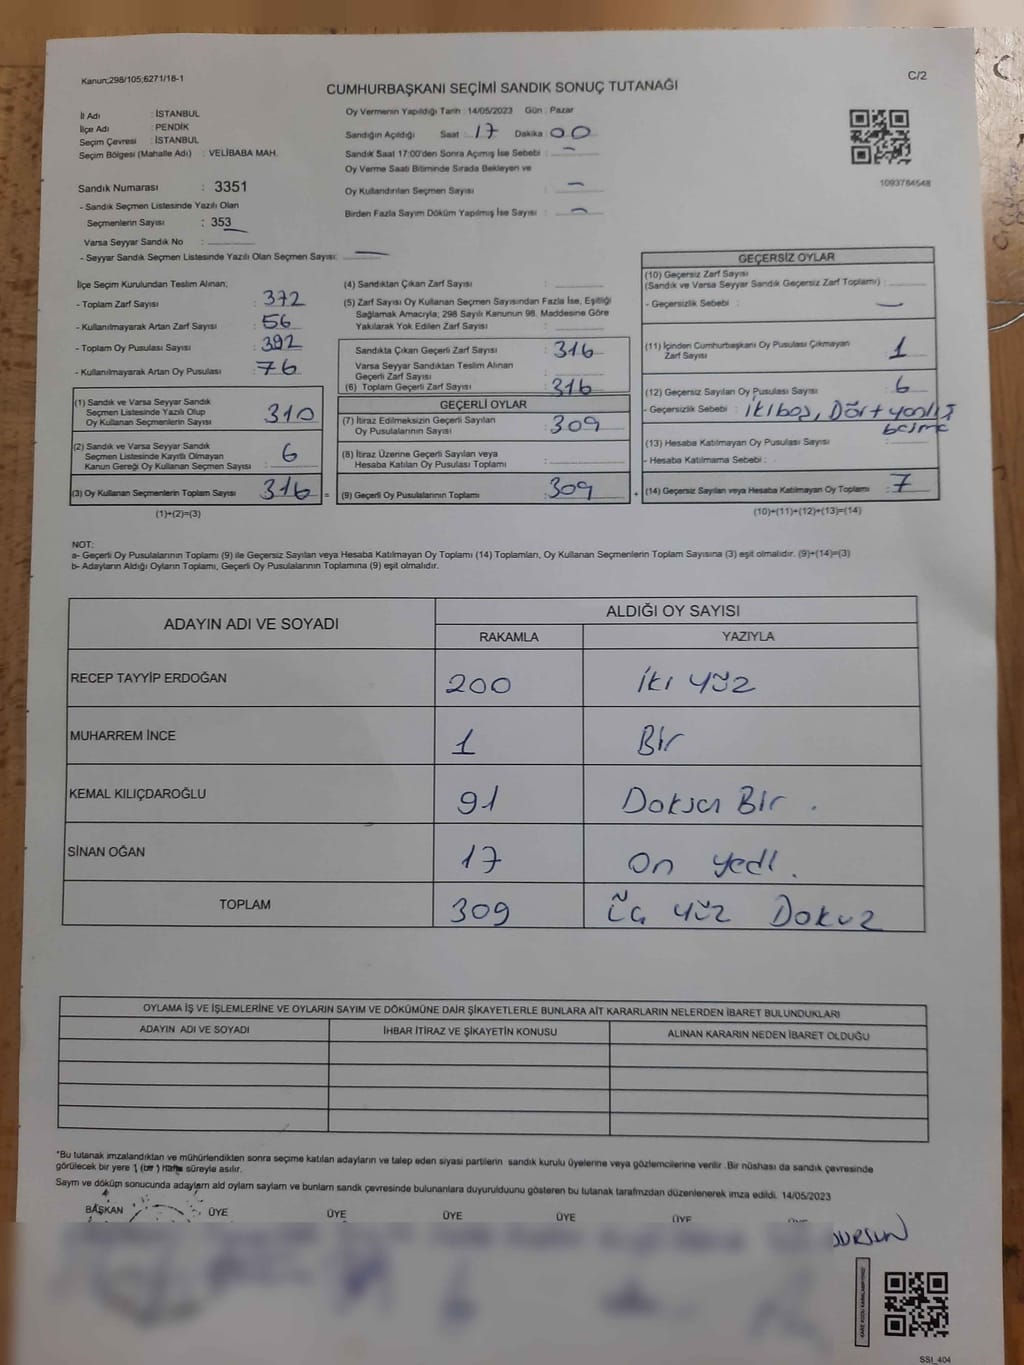 Kanun;298/105;6271/18-1
C/2
CUMHURBAŞKANI SEÇİMİ SANDIK SONUÇ TUTANAĞI
İl Adı : İSTANBUL
İlçe Adı : PENDİK
Seçim Çevresi : İSTANBUL
Seçim Bölgesi (Mahalle Adı) : VELİBABA MAH.
Oy Vermenin Yapıldığı Tarih : 14/05/2023 Gün : Pazar
Sandığın Açıldığı Saat : 17 Dakika : 00
Sandık Saat 17:00'den Sonra Açmış İse Sebebi : –
Oy Verme Saati Bitiminde Sırada Bekleyen ve
Oy Kullandırılan Seçmen Sayısı : –
Birden Fazla Sayım Döküm Yapılmış İse Sayısı : –
1093784548
Sandık Numarası : 3351
- Sandık Seçmen Listesinde Yazılı Olan
Seçmenlerin Sayısı : 353
Varsa Seyyar Sandık No :
- Seyyar Sandık Seçmen Listesinde Yazılı Olan Seçmen Sayısı: —
İlçe Seçim Kurulundan Teslim Alınan;
- Toplam Zarf Sayısı : 372
- Kullanılmayarak Artan Zarf Sayısı : 56
- Toplam Oy Pusulası Sayısı : 392
- Kullanılmayarak Artan Oy Pusulası : 76
(1) Sandık ve Varsa Seyyar Sandık
Seçmen Listesinde Yazılı Olup
Oy Kullanan Seçmenlerin Sayısı : 310
(2) Sandık ve Varsa Seyyar Sandık
Seçmen Listesinde Kayıtlı Olmayan
Kanun Gereği Oy Kullanan Seçmen Sayısı : 6
(3) Oy Kullanan Seçmenlerin Toplam Sayısı : 316 =
(1)+(2)=(3)
(4) Sandıktan Çıkan Zarf Sayısı :
(5) Zarf Sayısı Oy Kullanan Seçmen Sayısından Fazla İse, Eşitliği
Sağlamak Amacıyla; 298 Sayılı Kanunun 98. Maddesine Göre
Yakılarak Yok Edilen Zarf Sayısı :
Sandıkta Çıkan Geçerli Zarf Sayısı : 316
Varsa Seyyar Sandıktan Teslim Alınan
Geçerli Zarf Sayısı :
(6) Toplam Geçerli Zarf Sayısı : 316
GEÇERLİ OYLAR
(7) İtiraz Edilmeksizin Geçerli Sayılan
Oy Pusulalarının Sayısı : 309
(8) İtiraz Üzerine Geçerli Sayılan veya
Hesaba Katılan Oy Pusulası Toplamı :
(9) Geçerli Oy Pusulalarının Toplamı : 309 +
GEÇERSİZ OYLAR
(10) Geçersiz Zarf Sayısı
(Sandık ve Varsa Seyyar Sandık Geçersiz Zarf Toplamı) :
- Geçersizlik Sebebi : —
(11) İçinden Cumhurbaşkanı Oy Pusulası Çıkmayan
Zarf Sayısı : 1
(12) Geçersiz Sayılan Oy Pusulası Sayısı : 6
- Geçersizlik Sebebi : iki boş, Dört yanlış
basma
(13) Hesaba Katılmayan Oy Pusulası Sayısı :
- Hesaba Katılmama Sebebi :
(14) Geçersiz Sayılan veya Hesaba Katılmayan Oy Toplamı : 7
(10)+(11)+(12)+(13)=(14)
NOT:
a- Geçerli Oy Pusulalarının Toplamı (9) ile Geçersiz Sayılan veya Hesaba Katılmayan Oy Toplamı (14) Toplamları, Oy Kullanan Seçmenlerin Toplam Sayısına (3) eşit olmalıdır. (9)+(14)=(3)
b- Adayların Aldığı Oyların Toplamı, Geçerli Oy Pusulalarının Toplamına (9) eşit olmalıdır.
ADAYIN ADI VE SOYADI
ALDIĞI OY SAYISI
RAKAMLA YAZIYLA
RECEP TAYYİP ERDOĞAN 200 iki yüz
MUHARREM İNCE 1 Bir
KEMAL KILIÇDAROĞLU 91 Doksan Bir .
SİNAN OĞAN 17 On yedi .
TOPLAM 309 Üç yüz Dokuz
OYLAMA İŞ VE İŞLEMLERİNE VE OYLARIN SAYIM VE DÖKÜMÜNE DAİR ŞİKAYETLERLE BUNLARA AİT KARARLARIN NELERDEN İBARET BULUNDUKLARI
ADAYIN ADI VE SOYADI İHBAR İTİRAZ VE ŞİKAYETİN KONUSU ALINAN KARARIN NEDEN İBARET OLDUĞU
*Bu tutanak imzalandıktan ve mühürlendikten sonra seçime katılan adayların ve talep eden siyasi partilerin sandık kurulu üyelerine veya gözlemcilerine verilir .Bir nüshası da sandık çevresinde
görülecek bir yere 1 (bir) hafta süreyle asılır.
Sayım ve döküm sonucunda adayların ald oyların sayları ve bunların sandk çevresinde bulunanlara duyurulduunu gösteren bu tutanak tarafmzdan düzenlenerek imza edildi. 14/05/2023
BAŞKAN ÜYE ÜYE ÜYE ÜYE ÜYE
DURSUN
SSI_404